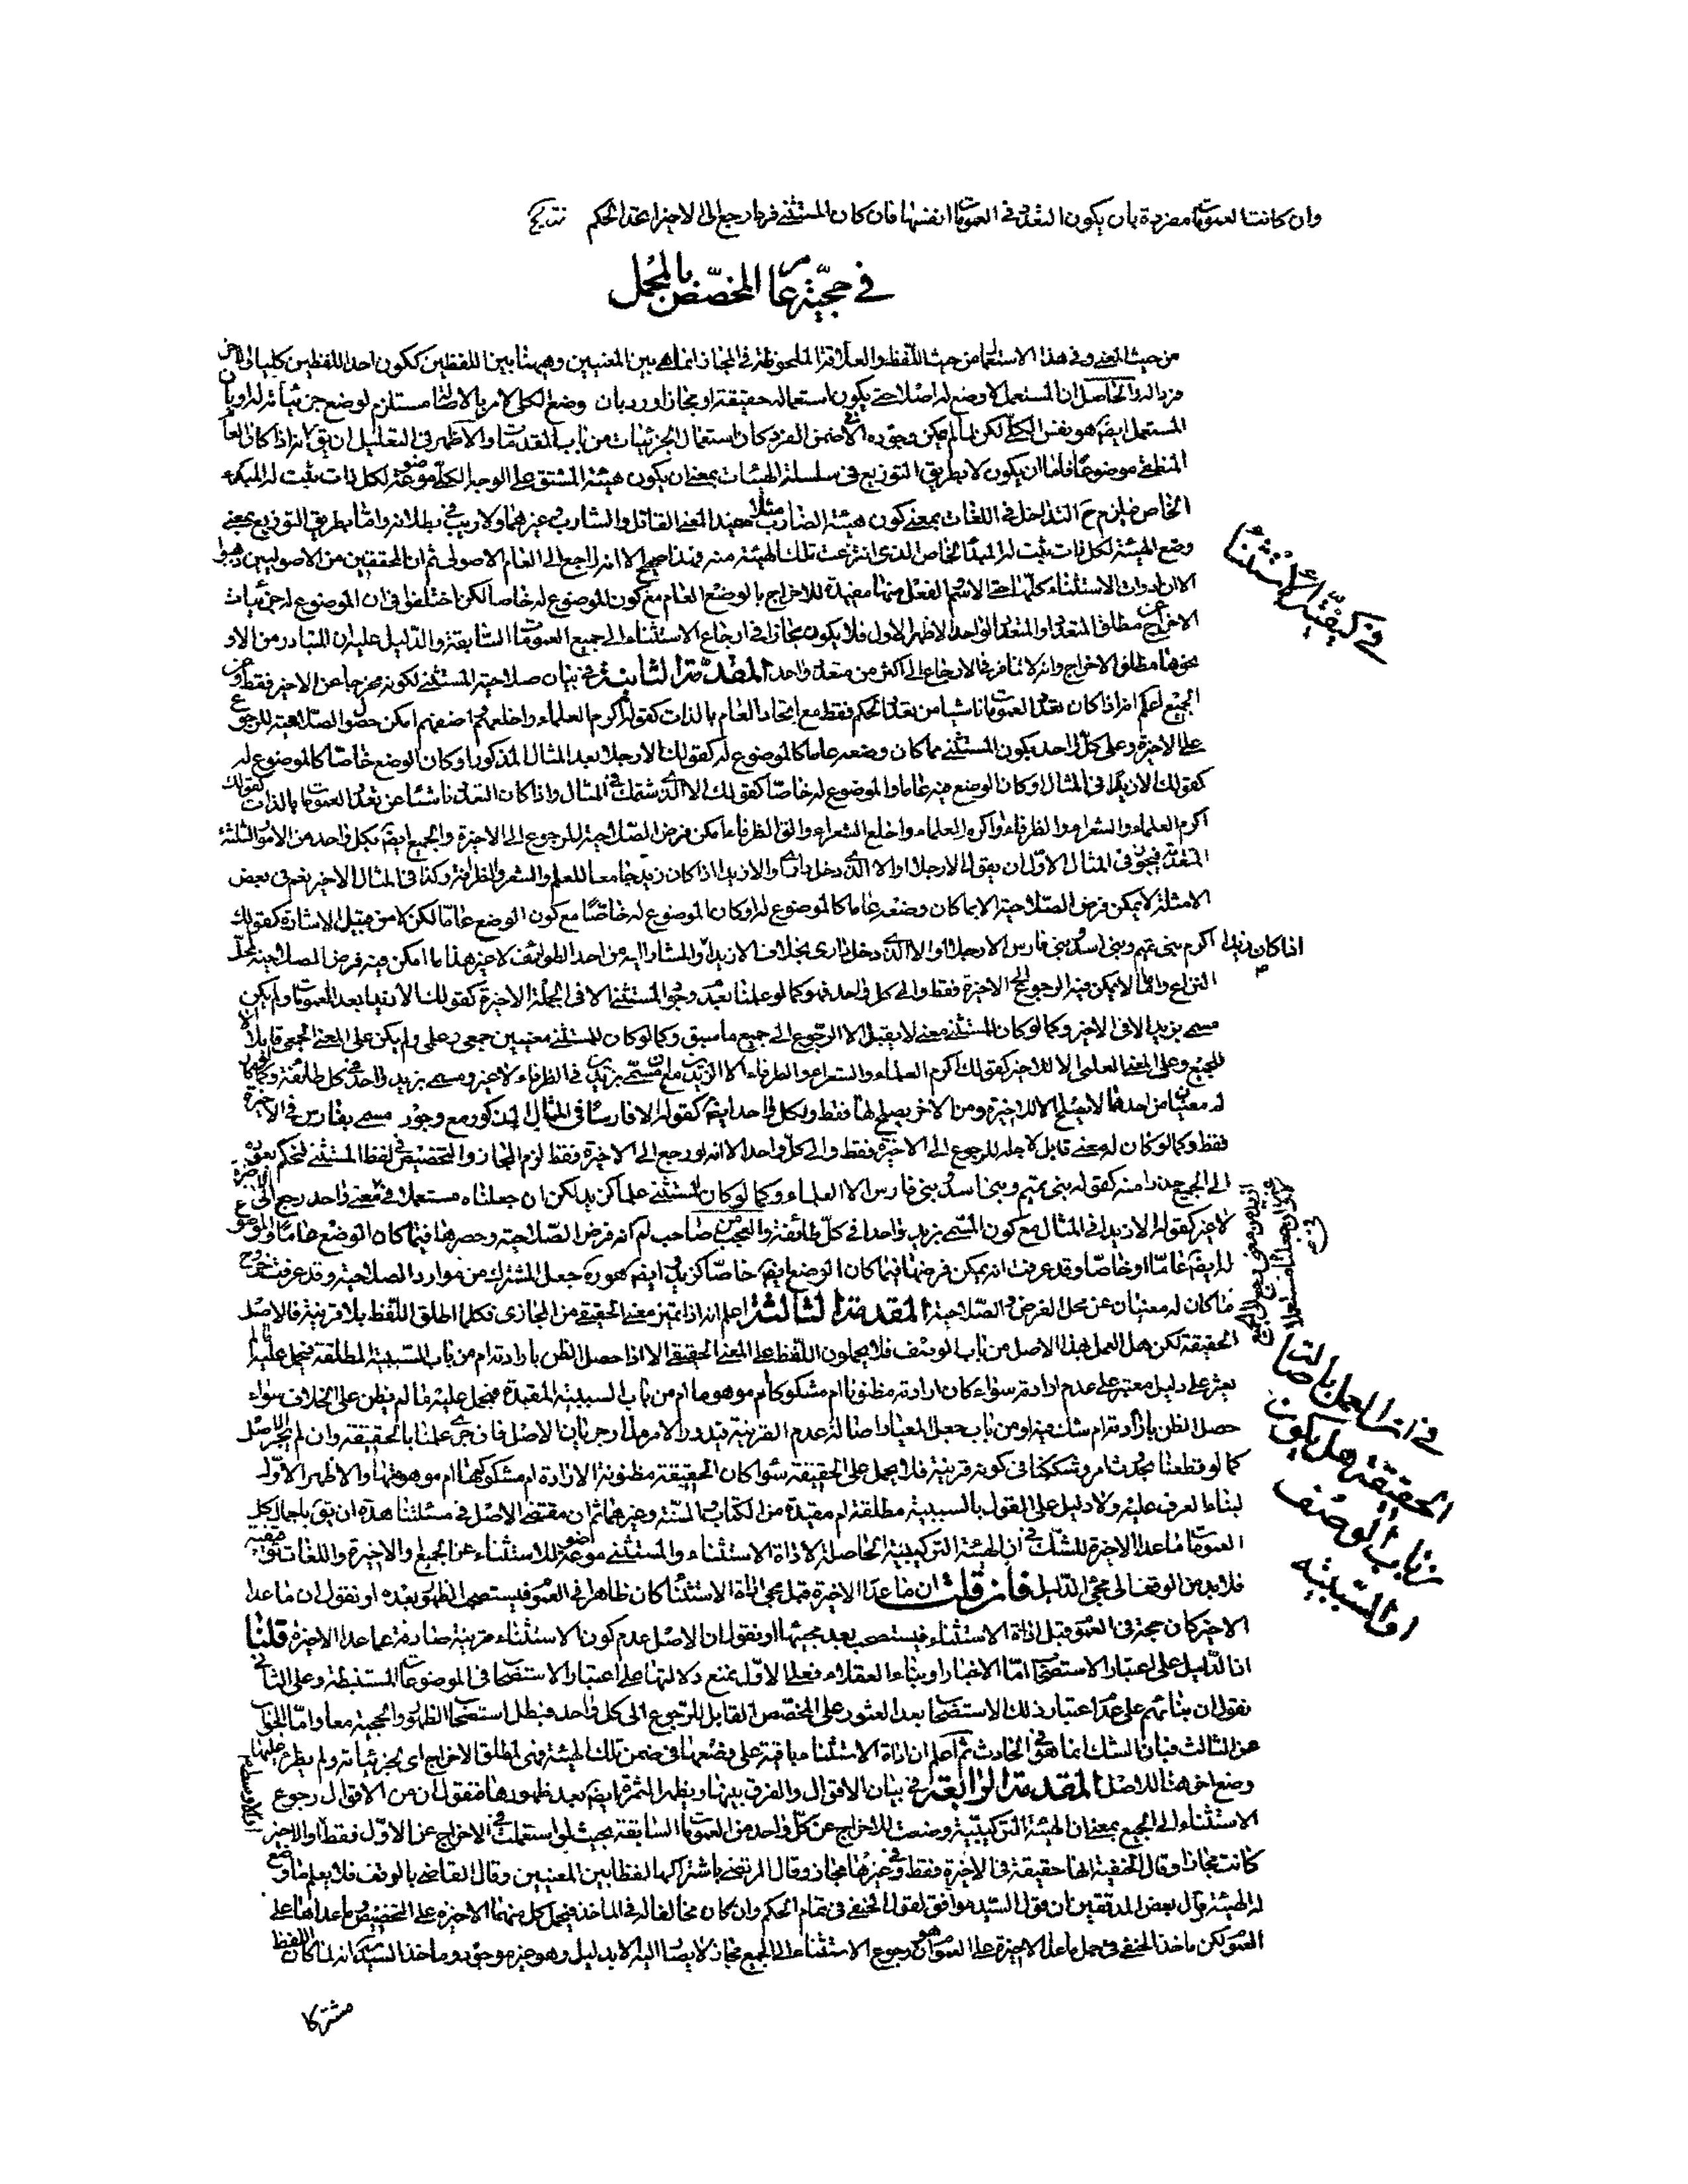 وان كانت العمومات مفردة بان يكون التعدد في العمومات انفسها فان كان المستثنى فردا رجع الى الاخير اعتدا لحكم
في حجيّة عام المخصّص بالمجمل
من حيث المعنى وفي هذا الاستعمال من حيث اللفظ والعلاقة الملحوظة في المجاز انما هي بين المعنيين وههنا بين اللفظين ككون احد اللفظين كليا والاخر
والحاصل ان المستعمل لا وضع له اصلا حتى يكون استعماله حقيقة او مجازا ورد بان وضع الكلى لامر بالاصالة مستلزم لوضع جزئياته له وبان
المستعمل ايضا هو نفس الكلى لكن لما لم يكن وجوده الا في ضمن الفرد كان استعمال الجزئيات من باب المقدمات والاظهر في التعليل ان يق انه اذا كان العام
المنطقى موضوعا فاما ان يكون لا بطريق التوزيع في سلسلة الهيئات بمعنى ان يكون هيئة المشتق على الوجه الكلى موضوعة لكل ذات يثبت له المبدء
الخاص فيلزم ح التداخل في اللغات بمعنى كون هيئة الضارب مثلا مفيدا لمعنى القاتل والشارب وغيرهما ولا ريب في بطلانه واما بطريق التوزيع بمعنى
وضع الهيئة لكل ذات يثبت له المبدأ الخاص الذى انتزعت تلك الهيئة منه وهذا صحيح الا انه راجع الى العام الاصولى ثم ان المحققين من الاصوليين ذهبوا
الى ان ادوات الاستثناء كلها حتى الاسم والفعل منها مفيدة للاخراج بالوضع العام مع كون الموضوع له خاصا لكن اختلفوا في ان الموضوع له جزئيات
الاخراج عن مطلق المتعدد او المتعدد الواحد الاظهر الاول فلا يكون مجازا في ارجاع الاستثناء الى جميع العمومات السابقة والدليل عليه ان المتبادر من الا و
نحوها مطلق الاخراج وانه لا منافرة في الارجاع الى اكثر من متعدد واحد المقدمة الثانية في بيان صلاحية المستثنى لكونه مخرجا عن الاخير فقط وعن
الجميع اعلم انه اذا كان تعدد العمومات ناشيا من تعدد الحكم فقط مع اتحاد العام بالذات كقوله اكرم العلماء واخلعهم اضفهم امكن حصول الصلاحية للرجوع
على الاخيرة وعلى كل واحد بكون المستثنى مما كان وضعه عاما كالموضوع له كقولك الا رجلا بعد المثال المذكور او كان الوضع خاصا كالموضوع له
كقولك الا زيدا في المثال او كان الوضع فيه عاما والموضوع له خاصا كقولك الا الذى شتمك في المثال واذا كان التعدد ناشئا عن تعدد العمومات بالذات كقولك
اكرم العلماء والشعراء والظرفاء او اكرم العلماء واخلع الشعراء والق الظرفاء امكن فرض الصلاحية للرجوع الى الاخيرة والجميع ايضا بكل واحد من الامور الثلثة
المتقدمة فيجوز في المثال الاول ان يقول الا رجلا او الا الذى دخل دارى والا زيدا اذا كان زيد جامعا للعلم والشعر والظرافة وكذا في المثال الاخير نعم في بعض
الامثلة لا يمكن فرض الصلاحية الا بما كان وضعه عاما كالموضوع له او كان الموضوع له خاصا مع كون الوضع عاما لكن لا من قبيل الاشارة كقولك
اكرم بنى تميم وبنى اسد وبنى فارس الا رجلا او الا الذى دخل دارى بخلاف الا زيدا والمشار اليه من احد الطوائف لا غير هذا ما امكن فيه فرض الصلاحية محل
اذا كان زيدا
النزاع واما ما لا يمكن فيه الرجوع الى الاخيرة فقط والى كل واحد فهو كما لو علمنا بعدم وجود المستثنى الا في الجملة الاخيرة كقولك الا زيدا بعد العمومات ولم يكن
مسمى بزيد الا في الاخير وكما لو كان المستثنى معنى لا يقبل الا الرجوع الى جميع ما سبق وكما لو كان للمستثنى معنيين جمعى وعلمى ولم يكن على المعنى الجمعى قابلا الا
للجميع وعلى المعنى العلمى الا للاخير كقولك اكرم العلماء والشعراء والظرفاء الا الزيدين مع مسمى بزيدين في الظرفاء لا غير ومسمى بزيد واحد في كل طائفة وكما لو كان
له معنيان من احدهما لا يصلح الا للاخيرة ومن الاخر يصلح لها فقط ولكل واحد ايضا كقوله الا فارسا في المثال المذكور مع وجود مسمى بفارس في الاخيرة
فقط وكما لو كان له معنى قابل لاجله للرجوع الى الاخيرة فقط والى كل واحد الا انه لو رجع الى الاخيرة فقط لزم المجاز والتخصيص في لفظ المستثنى لحكم بعوده
الى الجميع حذرا منه كقوله بنى تميم وبنى اسد وبنى فارس الا العلماء وكما لو كان المستثنى علما كزيد لكن ان جعلناه مستعملا في معنى واحد رجع الى الاخيرة
لا غير كقوله الا زيدا في المثال مع كون المسمى بزيد واحدا في كل طائفة والعجب من صاحب لم انه فرض الصلاحية وحصرها فيما كان الوضع عاما والموضوع
له ايضا عاما او خاصا وقد عرفت انه يمكن فرضها فيما كان الوضع ايضا خاصا كزيد ايضا هوره جعل المشترك من موارد الصلاحية وقد عرفت خروج
ما كان له معنيان عن محل الفرض والصلاحية المقدمة الثالثة اعلم انه اذا تميز معنى الحقيقى من المجازى فكلما اطلق اللفظ بلا قرينة فالاصل
الحقيقة لكن هل العمل بهذا الاصل من باب الوصف فلا يحملون اللفظ على المعنى الحقيقى الا اذا حصل الظن بارادته ام من باب السببية المطلقة فيحمل عليه ما لم
يعثر على دليل معتبر على عدم ارادته سواء كان ارادته مظنونا ام مشكوكا ام موهوما ام من باب السببية المقيدة فيحمل عليه ما لم يظن على الخلاف سواء
حصل الظن بارادته ام شك فيه او من باب جعل المعيار اصالة عدم القرينة فيدور الامر مدار جريان الاصل فان جرى علمنا بالحقيقة وان لم يجر الاصل
كما لو قطعنا بحدث امر وشككنا في كونه قرينة فلا يحمل على الحقيقة سواء كان الحقيقة مظنونة الارادة ام مشكوكها ام موهومها والاظهر الاول
لبناء العرف عليه ولا دليل على القول بالسببية مطلقة ام مقيدة من الكتاب والسنة وغيرهما ثم ان مقتضى الاصل في مسئلتنا هذه ان يق باجمال كل
العمومات ما عدا الاخيرة للشك في ان الهيئة التركيبية الحاصلة لاداة الاستثناء والمستثنى موضوعة للاستثناء عن الجميع والاخيرة واللغات توقيفية
فلا بد من الوقف الى مجئ الدليل فان قلت ان ما عدا الاخيرة قبل مجئ اداة الاستثناء كان ظاهرا في العموم فيستصحب الظهور بعده او نقول ان ما عدا
الاخير كان حجة في العموم قبل اداة الاستثناء فيستصحب بعد مجيئها او نقول ان الاصل عدم كون الاستثناء قرينة صارفة عما عدا الاخيرة قلنا
ان الدليل على اعتبار الاستصحاب اما الاخبار او بناء العقلاء فعلى الاول يمنع دلالتها على اعتبار الاستصحاب في الموضوعات المستنبطة وعلى الثانى
نقول ان بنائهم على عدم اعتبار ذلك الاستصحاب بعد العثور على المخصص القابل للرجوع الى كل واحد فبطل استصحاب الظهور والحجية معا واما الجواب
عن الثالث فبان الشك انما هو في الحادث ثم اعلم ان اداة الاستثناء باقية على وضعها في ضمن تلك الهيئة فهى لمطلق الاخراج اى لجزئياته ولم يطرء عليها
وضع اخر هنا للاصل المقدمة الرابعة في بيان الاقوال والفرق بينها ويظهر الثمرة ايضا بعد ظهورها فنقول ان من الاقوال رجوع
الاستثناء الى الجميع بمعنى ان الهيئة التركيبية وضعت للاخراج عن كل واحد من العمومات السابقة بحيث لو استعملت في الاخراج عن الاول فقط او الاخير
كانت مجازا وقال الحنفية انها حقيقة في الاخيرة فقط وفي غيرها مجاز وقال المرتضى باشتراكها لفظا بين المعنيين وقال القاضى بالوقف فلا يعلم ما وضع
له الهيئة وقال بعض المدققين ان قول السيد موافق لقول الحنفى في تمام الحكم وان كان مخالفا له في الماخذ فيحمل كل منهما الاخيرة على التخصيص وما عداها على
العموم لكن ماخذ الحنفى في حمل ما عدا الاخيرة على العموم هو ان رجوع الاستثناء الى الجميع مجاز لا يصار اليه الا بدليل وهو غير موجود وماخذ السيد انه لما كان اللفظ
مشتركا
في كيفية الاستثناء
في ان العمل باصالة
الحقيقة هل يكون
من باب الوصف
او السببية